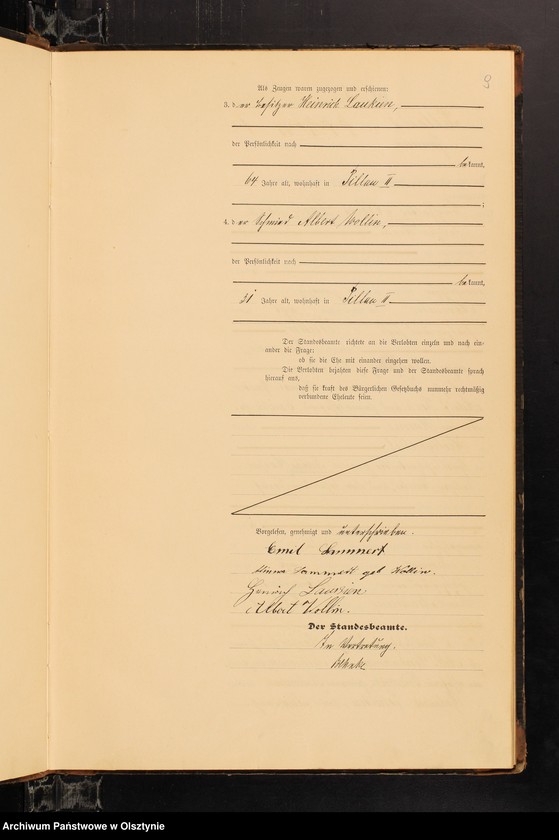 9
Als Zeugen waren zugezogen und erschienen:
3. der Besitzer Heinrich Laukien,
der Persönlichkeit nach
bekannt,
64 Jahre alt, wohnhaft in Pillau II
;
4. der Schmied Albert Wollin,
der Persönlichkeit nach
bekannt,
31 Jahre alt, wohnhaft in Pillau II
Der Standesbeamte richtete an die Verlobten einzeln und nach ein-
ander die Frage:
ob sie die Ehe mit einander eingehen wollen.
Die Verlobten bejahten diese Frage und der Standesbeamte sprach
hierauf aus,
daß sie kraft des Bürgerlichen Gesetzbuchs nunmehr rechtmäßig
verbundene Eheleute seien.
Vorgelesen, genehmigt und unterschrieben.
Emil Lammert
Lammert geb Wollin.
Heinrich Laukien
Albert Wollin.
Der Standesbeamte.
In Vertretung.
Archiwum Państwowe w Olsztynie